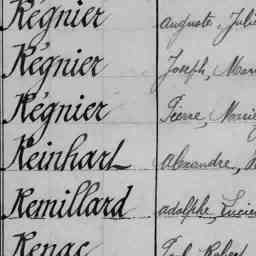 Régnier Auguste, Julie
Régnier Joseph, Marie
Régnier Pierre, Marie
Reinhart Alexandre,
Remillard adolphe, Lucien
Renac Robert